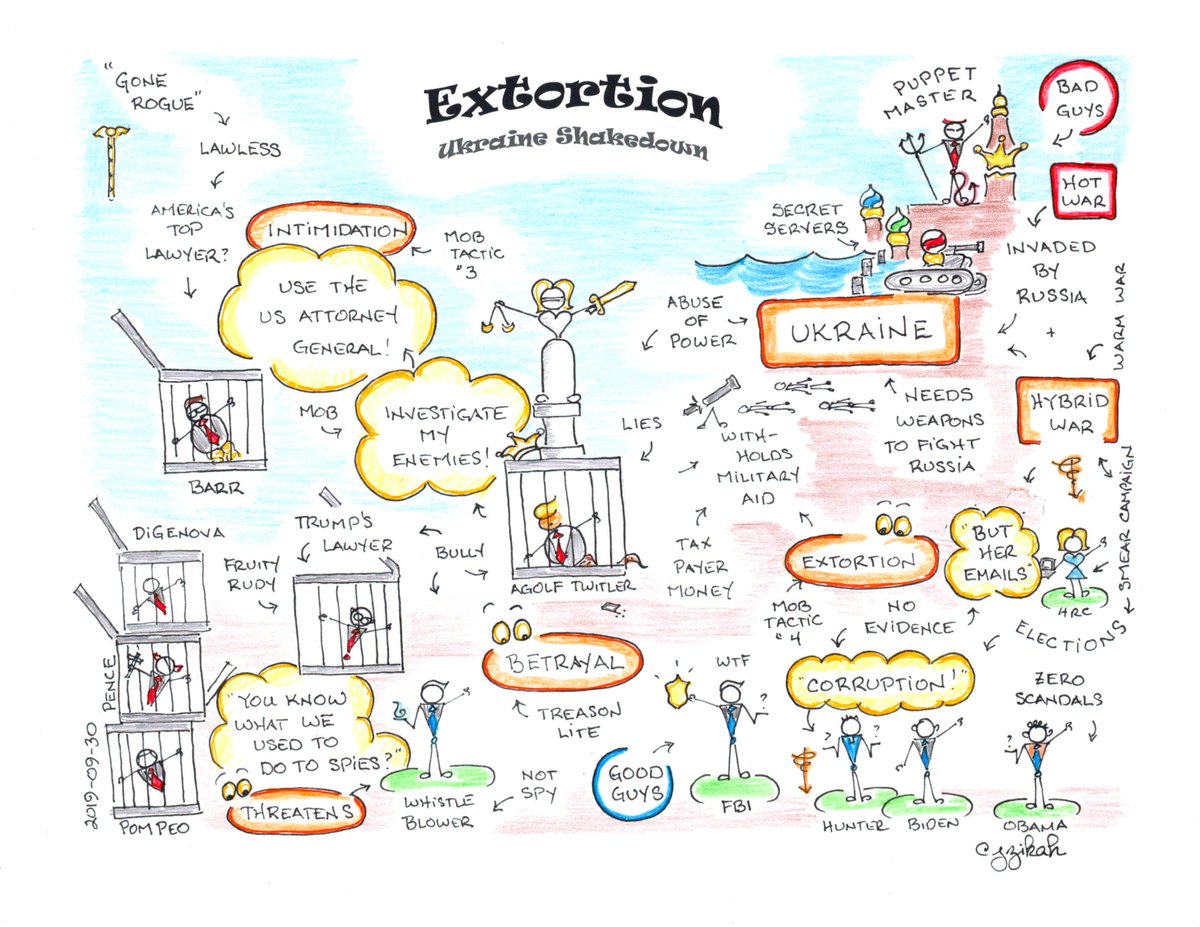 Extortion
Ukraine Shakedown
"GONE
ROGUE"
LAWLESS
AMERICA'S
TOP
LAWYER?
INTIMIDATION
MOB
TACTIC
#3
USE THE
US ATTORNEY
GENERAL!
MOB
INVESTIGATE
MY
ENEMIES!
BARR
PUPPET
MASTER
BAD
GUYS
HOT
WAR
SECRET
SERVERS
INVADED
BY
RUSSIA
+
WARM WAR
ABUSE
OF
POWER
UKRAINE
HYBRID
WAR
LIES
WITH-
HOLDS
MILITARY
AID
NEEDS
WEAPONS
TO FIGHT
RUSSIA
SMEAR CAMPAIGN
DIGENOVA
FRUITY
RUDY
TRUMP'S
LAWYER
BULLY
AGOLF TWITLER
TAX
PAYER
MONEY
EXTORTION
"BUT
HER
EMAILS"
HRC
MOB
TACTIC
#4
NO
EVIDENCE
ELECTIONS
PENCE
BETRAYAL
TREASON
LITE
WTF
"CORRUPTION!"
ZERO
SCANDALS
"YOU KNOW
WHAT WE
USED TO
DO TO SPIES?"
THREATENS
WHISTLE
BLOWER
NOT
SPY
GOOD
GUYS
FBI
HUNTER
BIDEN
OBAMA
POMPEO
2019-09-30
©jzikah